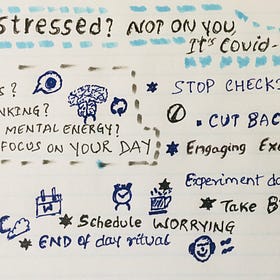 Stressed? NOT ON YOU,
It's Covid-
S?
NKING?
MENTAL ENERGY?
FOCUS ON YOUR DAY
STOP CHECKS
CUT BAC
Engaging Exe
Experiment da
Take B
Schedule WORRYING
END OF day ritual